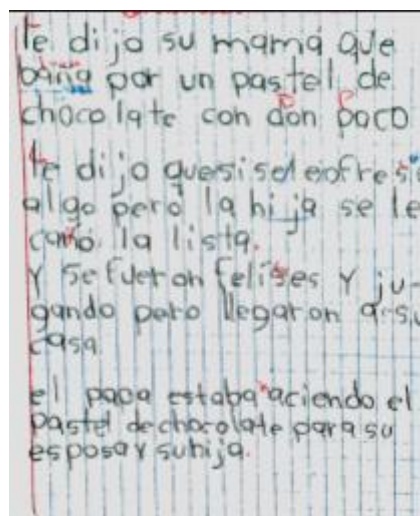 te dijo su mamá que
baña por un pastel de
chocolate con don paco
te dijo quesi seleofresie
algo pero la hija se le
callo la lista.
Y se fueron felises y ju-
gando pero llegaron asu
casa
el papa estaba aciendo el
pastel de chocolate para su
esposa y suhija.